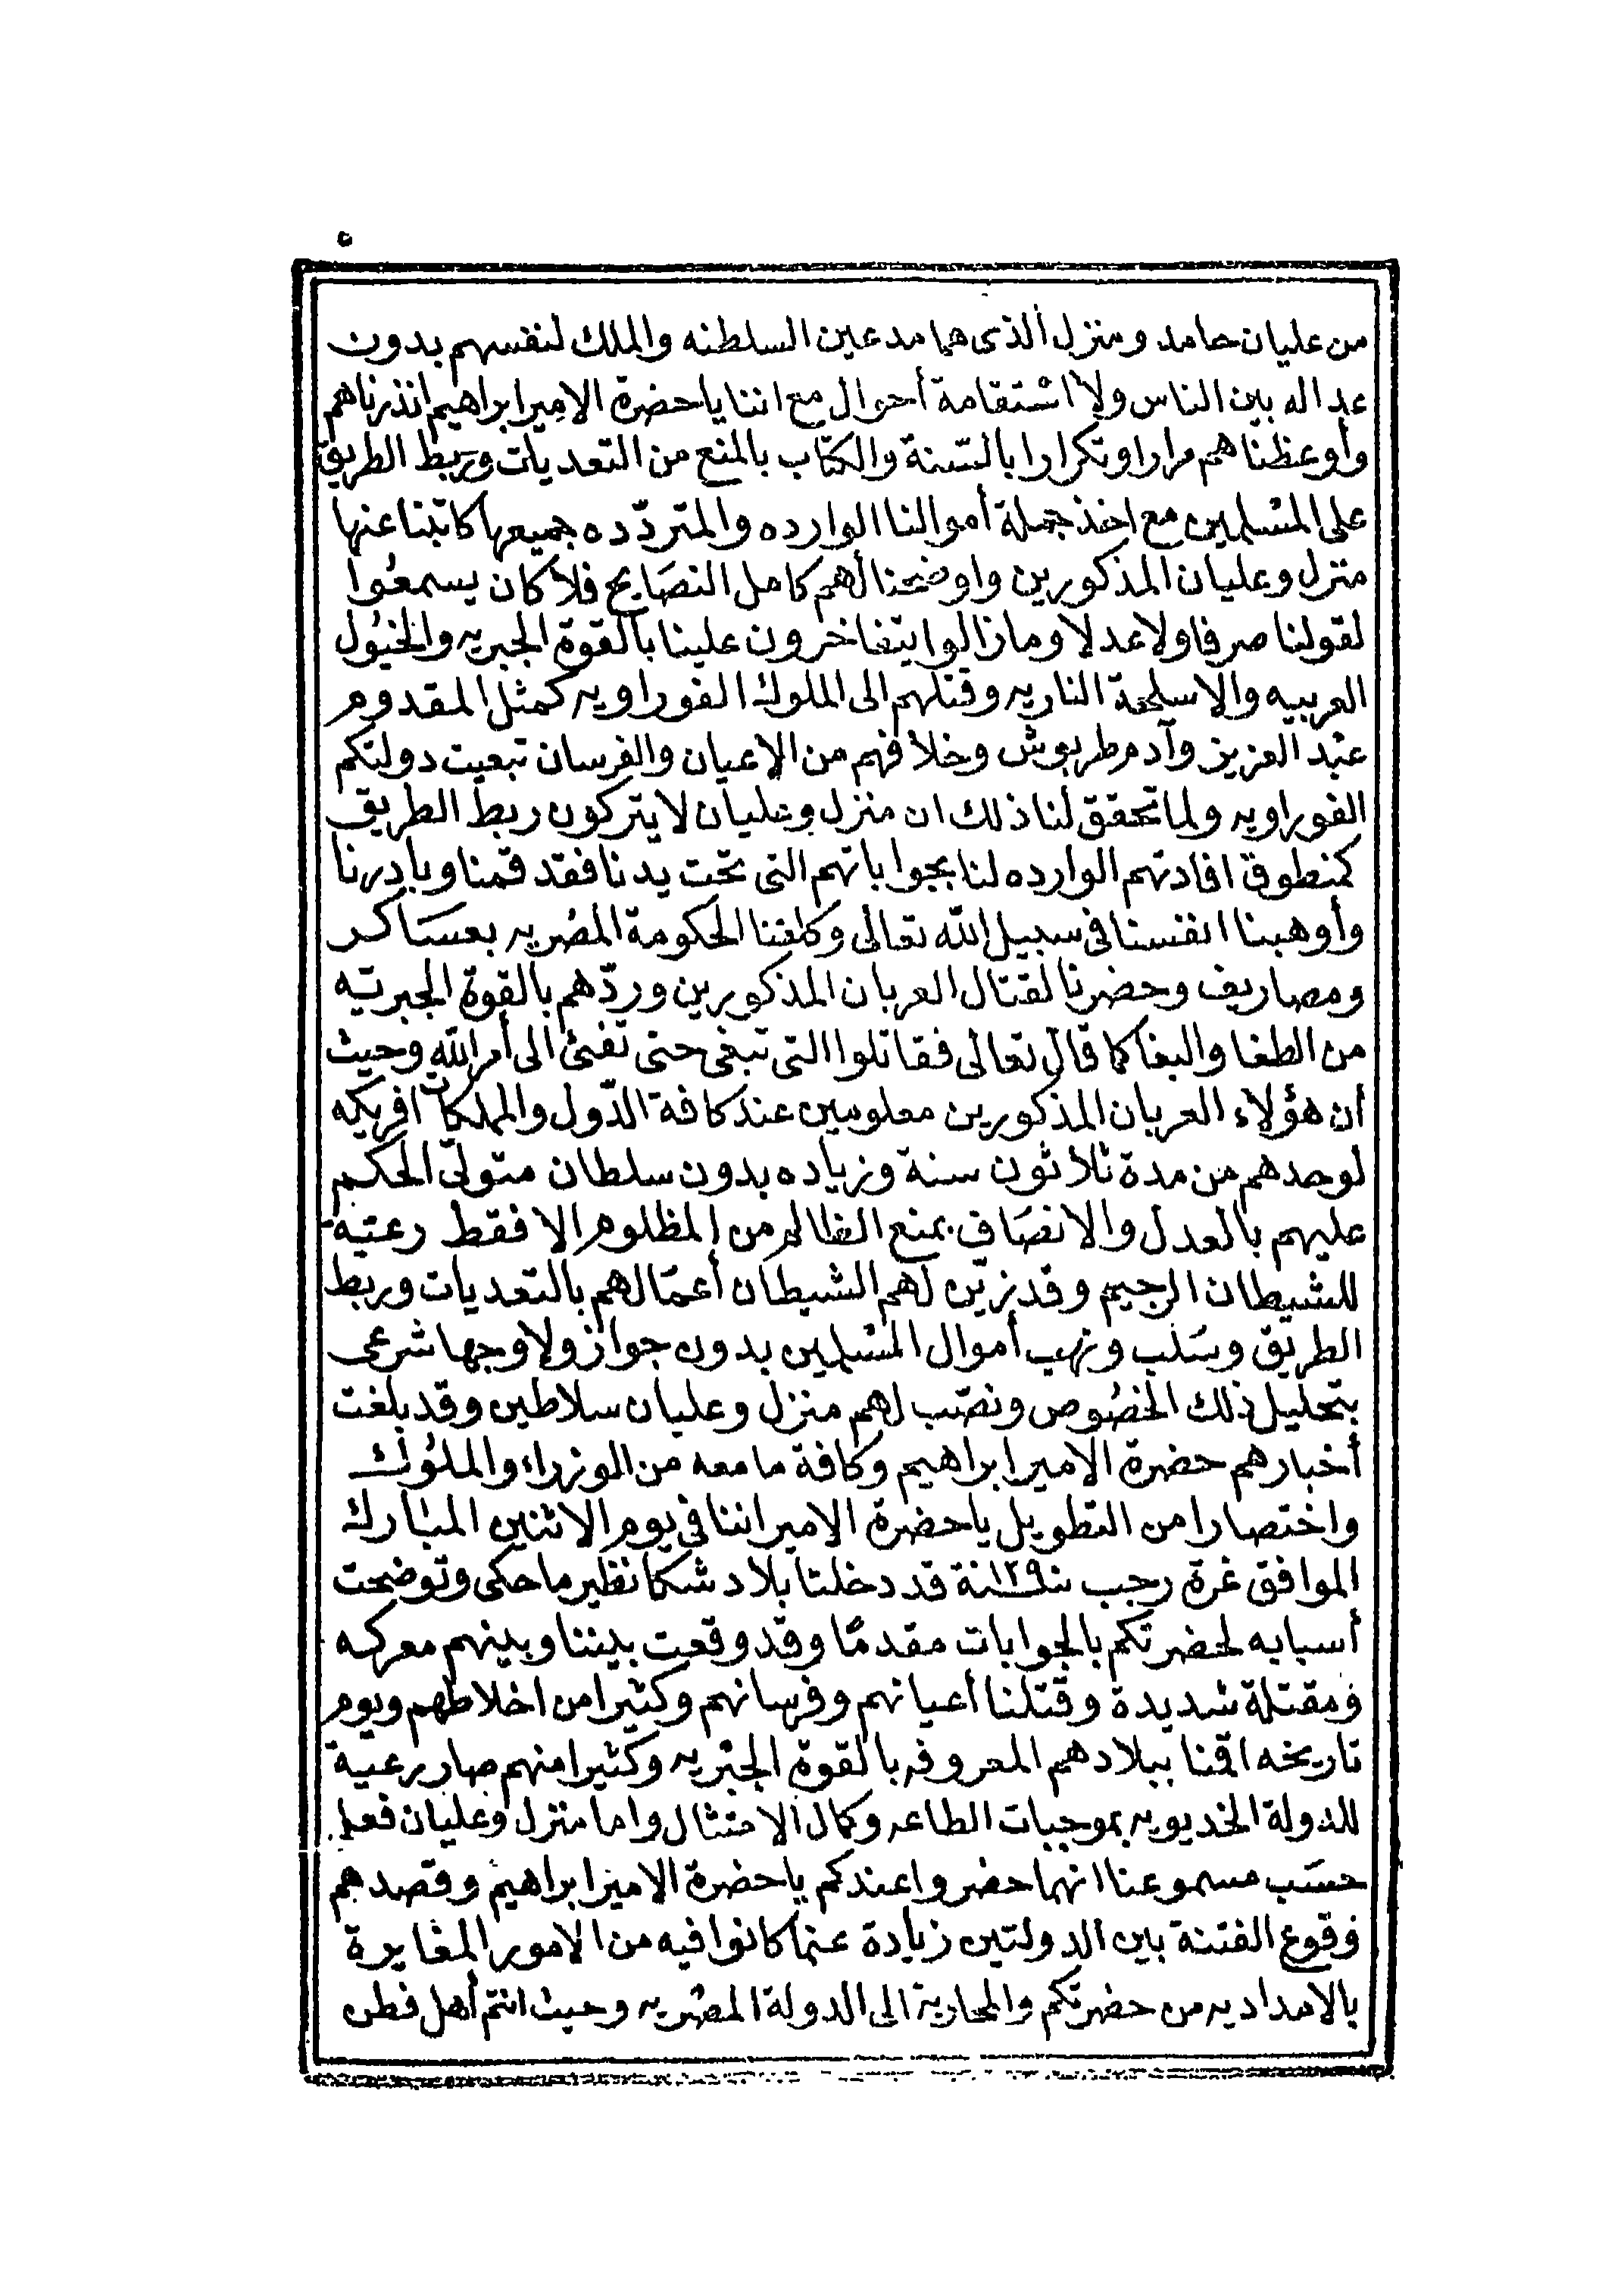 ٥
من عليان حامد ومنزل الذى هما مدعين السلطنه والملك لنفسهم بدون
عداله بين الناس ولا اسْتقامة أحوال مع اننا يا حضرة الامير ابراهيم انذرناهم
وأوعظناهم مرارا وتكرارا بالسّنة والكتاب بالمنع من التعديات وربط الطريق
على المسْلمين مع اخذ جملة أموالنا الوارده والمتردّده جميعها كاتبنا عنها
منزل وعليان المذكورين واوضحنا لهم كامل النصَايح فلا كان يسمعُوا
لقولنا صرفا ولا عدلا وما زالوا يتفاخرون علينا بالقوة الجبريه والخيُول
العربيه والاسلحة الناريه وقتلهم الى الملوك الفوراويه كمثل المقدوم
عبْد العزيز وآدم طربوش وخلافهم من الاعيان والفرسان تبعيت دولتكم
الفوراويه ولما تحقق لنا ذلك ان منزل وعليان لا يتركون ربط الطريق
كمنطوق افادتهم الوارده لنا بجواباتهم التى تحت يدنا فقد قمنا وبادرنا
وأوهبنا انفسنا فى سبيل الله تعالى وكلفنا الحكومة المصْريه بعسَاكر
ومصاريف وحضرنا لقتال العربان المذكورين وردّهم بالقوة الجبريّه
من الطغا والبغا كما قال تعالى فقاتلوا التى تبغى حتى تفئ الى أمر الله وحيث
أن هؤلاء العربان المذكورين معلومين عند كافة الدّول والمملكات افريكه
لوحدهم من مدة ثلاثون سنة وزياده بدون سلطان متولّى الحكم
عليهم بالعدل والانصَاف بمنع الظالم من المظلوم الا فقط رعيّة
للشيطان الرجيم وقد زيّن لهم الشيطان أعمَالهم بالتعديات وربط
الطريق وسَلب ونهب أموال المسْلمين بدون جواز ولا وجها شرعى
بتحليل ذلك الخصُوص ونصّب لهم منزل وعليان سلاطين وقد بلغت
أخبارهم حضرة الامير ابراهيم وكافة ما معه من الوزراء والملُوك
واختصارا من التطويل يا حضرة الامير اننا فى يوم الاثنين المبَارك
الموافق غرة رجب سنة ١٢٩٠ قد دخلنا بلاد شكا نظير ما حكى وتوضحت
أسبابه لحضرتكم بالجوابات مقدمًا وقد وقعت بيننا وبينهم معركه
ومقتلة شديدة وقتلنا أعيانهم وفرسانهم وكثيرا من اخلاطهم ويوم
تاريخه اقمنا ببلادهم المعروفه بالقوة الجبْريه وكثيرا منهم صار رعية
للدولة الخديويه بموجبات الطاعه وكمال الامتثال واما منزل وعليان فعلى
حسَب مسموعنا انهما حضروا عندكم يا حضرة الامير ابراهيم وقصدهم
وقوع الفتنة بين الدولتين زيادة عنما كانوا فيه من الامور المغايرة
بالامداديه من حضرتكم والمحاربة الى الدولة المصْريه وحيث انتم أهل فطن